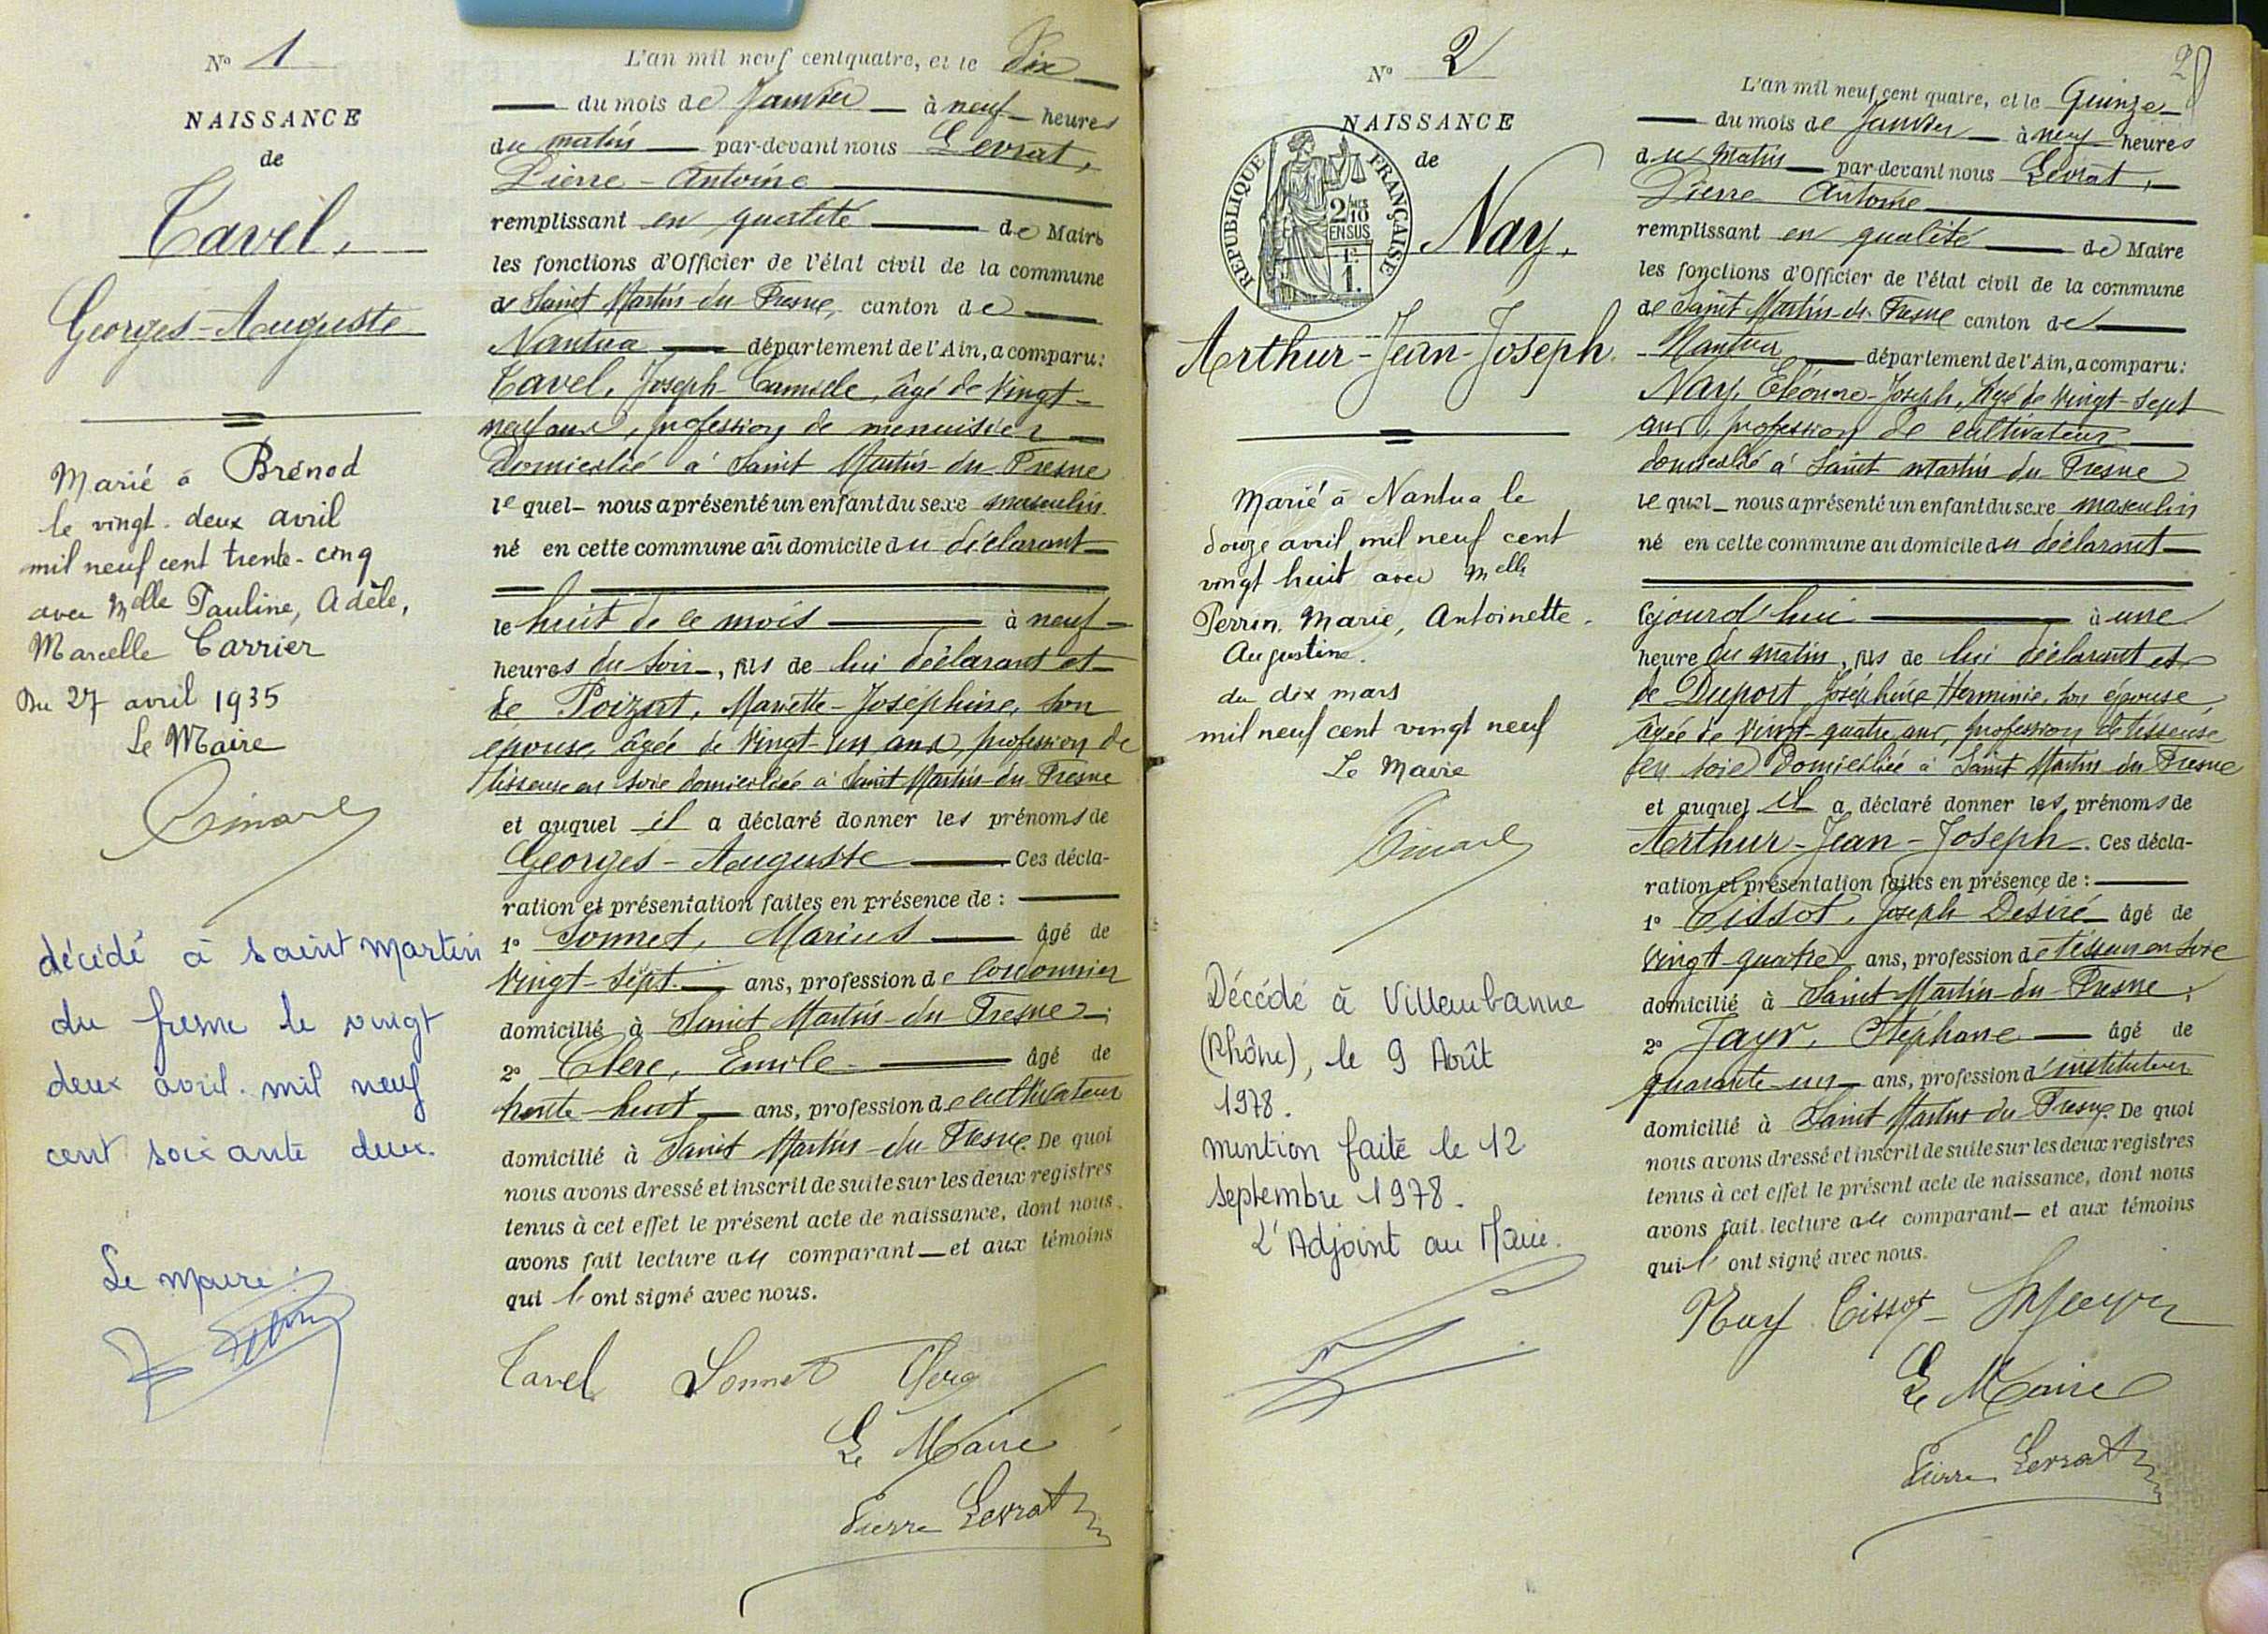 N° 1
NAISSANCE
de
Tavel,
Georges-Auguste
Marié à Brénod
le vingt-deux avril
mil neuf cent trente-cinq
avec Melle Pauline, Adèle,
Marcelle Carrier
Du 27 avril 1935
Le Maire
décédé à saint martin
du fresne le vingt
deux avril. mil neuf
cent soixante deux.
Le maire
L'an mil neuf cent quatre, et le Dix
du mois de Janvier à neuf heures
du matin par-devant nous Levrat,
Pierre-Antoine
remplissant en qualité de Maire
les fonctions d'Officier de l'état civil de la commune
de Saint Martin-du-Fresne, canton de
Nantua département de l'Ain, a comparu:
Tavel, Joseph-Camille, âgé de vingt-
neuf ans, profession de menuisier
domicilié à Saint Martin-du-Fresne
lequel nous a présenté un enfant du sexe masculin
né en cette commune au domicile du déclarant
le huit de ce mois à neuf
heures du soir, fils de lui déclarant et
de Poizat, Mariette-Joséphine, son
épouse, âgée de vingt-un ans, profession de
tisseuse en soie domiciliée à Saint Martin-du-Fresne
et auquel il a déclaré donner les prénoms de
Georges-Auguste Ces décla-
ration et présentation faites en présence de :
1° Sonnet, Marius âgé de
vingt-sept ans, profession de cordonnier
domicilié à Saint Martin-du-Fresne;
2° Clerc, Emile âgé de
trente-huit ans, profession de cultivateur
domicilié à Saint Martin-du-Fresne. De quoi
nous avons dressé et inscrit de suite sur les deux registres
tenus à cet effet le présent acte de naissance, dont nous
avons fait lecture au comparant et aux témoins
qui l'ont signé avec nous.
Tavel Sonnet Clerc
Le Maire
Pierre Levrat
28
N° 2
NAISSANCE
de
REPUBLIQUE FRANÇAISE
2/10
EN SUS
1.
Nay,
Arthur-Jean-Joseph.
Marié à Nantua le
douze avril mil neuf cent
vingt huit avec Melle
Perrin, Marie, Antoinette,
Augustine.
du dix mars
mil neuf cent vingt neuf
Le Maire
Décédé à Villeurbanne
(Rhône), le 9 Août
1978.
mention faite le 12
septembre 1978.
L'Adjoint au Maire.
L'an mil neuf cent quatre, et le Quinze
du mois de Janvier à neuf heures
du Matin par-devant nous Levrat,
Pierre Antoine
remplissant en qualité de Maire
les fonctions d'Officier de l'état civil de la commune
de Saint Martin-du-Fresne canton de
Nantua département de l'Ain, a comparu:
Nay, Eléonore-Joseph, âgé de vingt-sept
ans, profession de cultivateur
domicilié à Saint Martin du Fresne
lequel nous a présenté un enfant du sexe masculin
né en cette commune au domicile du déclarant
Cejourd'hui à une
heure du matin, fils de lui déclarant et
de Duport, Joséphine Herminie, son épouse,
âgée de vingt-quatre ans, profession de tisseuse
en soie domiciliée à Saint Martin du Fresne
et auquel il a déclaré donner les prénoms de
Arthur-Jean-Joseph. Ces décla-
ration et présentation faites en présence de :
1° Tissot, Joseph Désiré âgé de
vingt-quatre ans, profession de tisseur en soie
domicilié à Saint Martin-du-Fresne;
2° Jayr, Stéphane âgé de
quarante-un ans, profession d'instituteur
domicilié à Saint Martin du Fresne. De quoi
nous avons dressé et inscrit de suite sur les deux registres
tenus à cet effet le présent acte de naissance, dont nous
avons fait lecture au comparant et aux témoins
qui l'ont signé avec nous.
Nay Tissot
Le Maire
Pierre Levrat